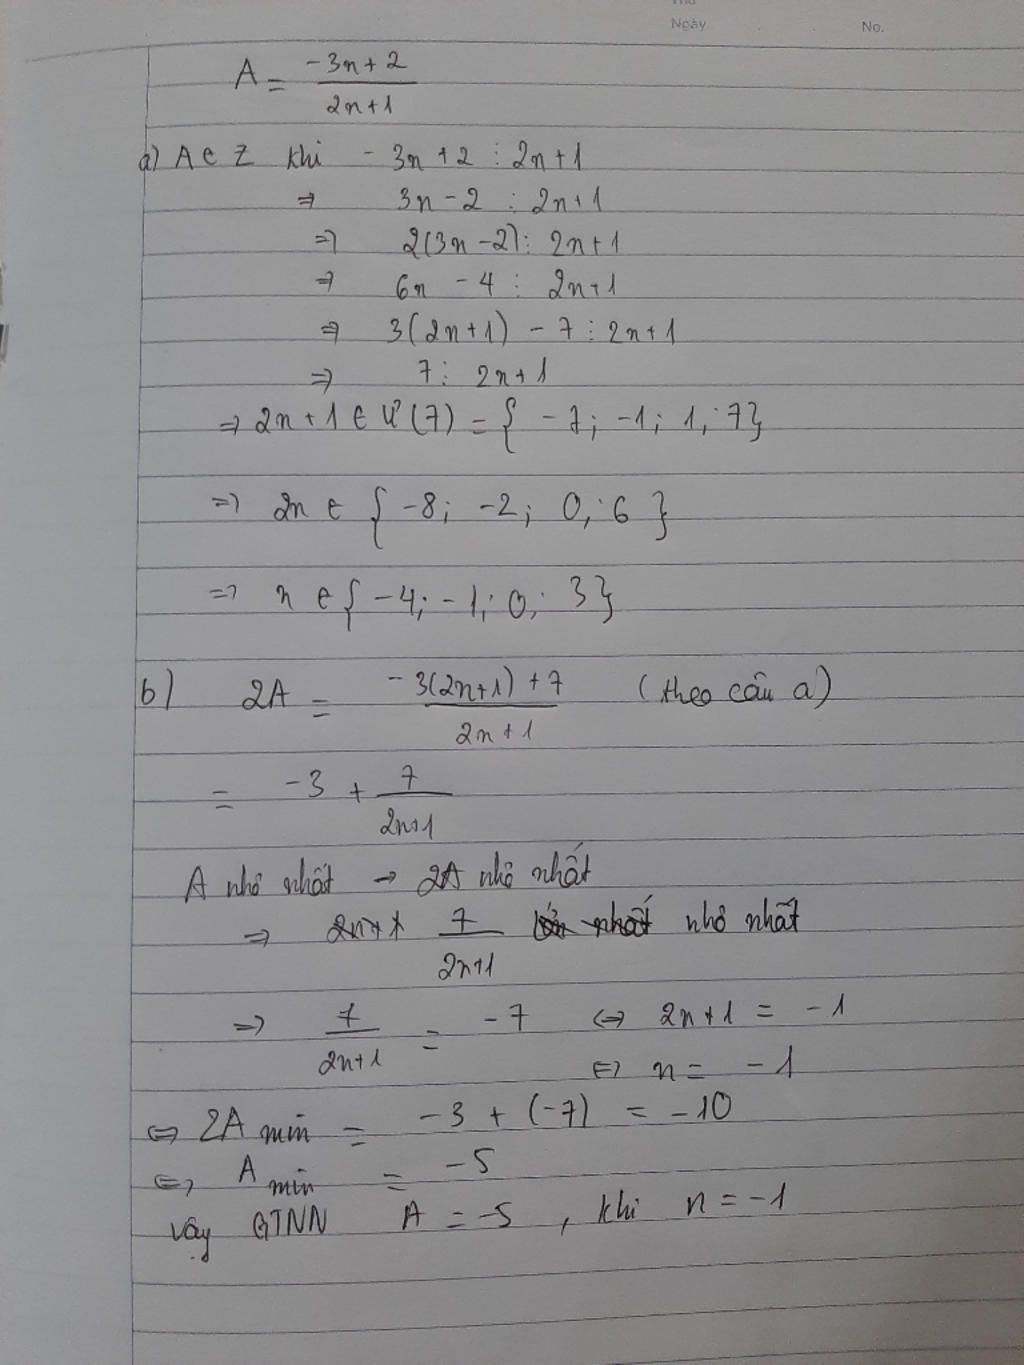 Thứ
Ngày No.
A = \frac{-3n+2}{2n+1}
a) A ∈ Z khi -3n+2 ⋮ 2n+1
⇒ 3n-2 ⋮ 2n+1
⇒ 2(3n-2) ⋮ 2n+1
⇒ 6n - 4 ⋮ 2n+1
⇒ 3(2n+1) - 7 ⋮ 2n+1
⇒ 7 ⋮ 2n+1
⇒ 2n+1 ∈ Ư(7) = { -7; -1; 1; 7}
⇒ 2n ∈ { -8; -2; 0; 6 }
⇒ n ∈ { -4; -1; 0; 3}
b) 2A = \frac{-3(2n+1)+7}{2n+1} (theo câu a)
= -3 + \frac{7}{2n+1}
A nhỏ nhất → 2A nhỏ nhất
⇒ \frac{7}{2n+1} nhỏ nhất
⇒ \frac{7}{2n+1} = -7 ⇔ 2n+1 = -1
⇔ n = -1
⇔ 2A min = -3 + (-7) = -10
⇔ A min = -5
vậy GTNN A = -5, khi n = -1